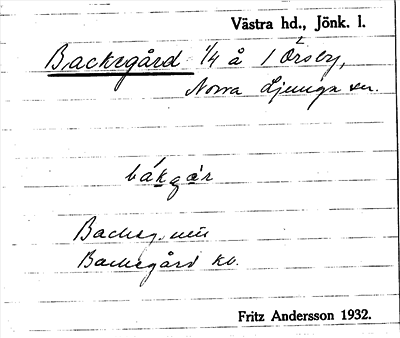 Västra hd., Jönk. l.
Backegård 1/4 å 1 Örsby,
Norra Ljunga sn.
bákgår
Backeg.
Backegård
Fritz Andersson 1932.